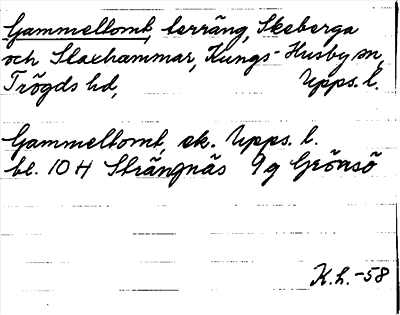 Gammeltomt, terräng, Skeberga
och Slaxhammar, Kungs-Husby sn,
Trögds hd, Upps. l.
Gammeltomt, ek. Upps. l.
bl. 104 Strängnäs 9g Grönsö
K.h. -58